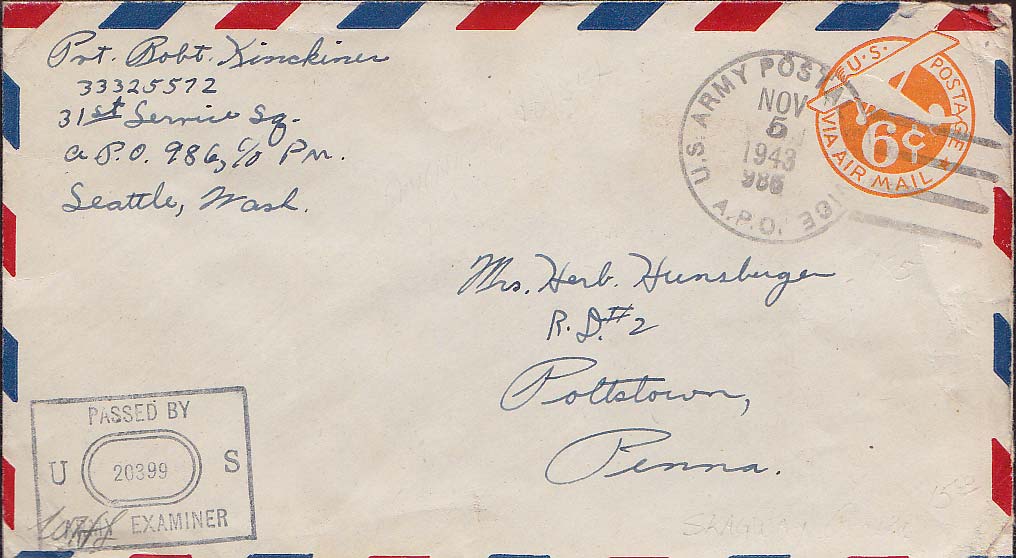 Pvt. Robt. Kinckiner
33325572
31st Service Sq.
A.P.O. 986, c/o P.M.
Seattle, Wash.
U.S. ARMY POSTAL
NOV
5
1943
986
A.P.O.
U.S. POSTAGE
6¢
VIA AIR MAIL
Mrs. Herb. Hunsberger
R.D. #2
Pottstown,
Penna.
PASSED BY
U 20399 S
ARMY EXAMINER